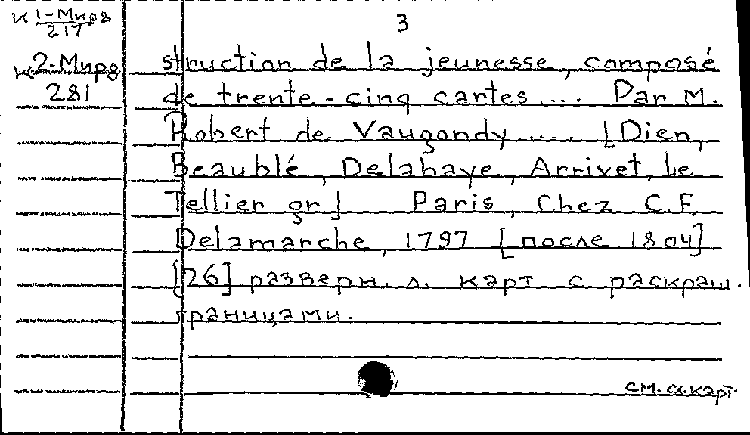 К 1-Мира
217
3
К 2-Мира
281
struction de la jeunesse, composé
de trente-cinq cartes .... Par M.
Robert de Vaugondy .... [Dien,
Beaublé, Delahaye, Arrivet, Le
Tellier gr.] Paris, Chez C.F.
Delamarche, 1797 [после 1804]
[26] разверн. л. карт с раскраш.
границами.
см. сл. карт.